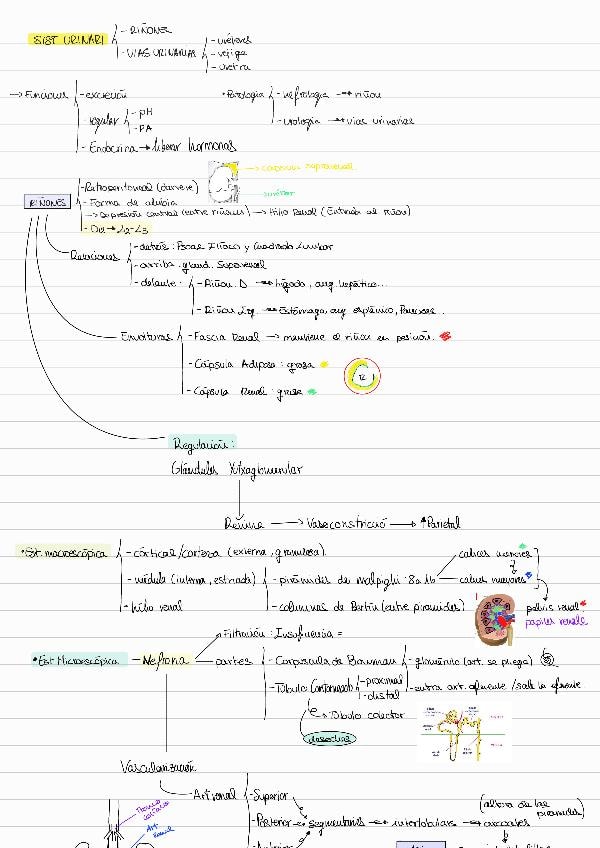 SIST URINARI
- RIÑONES
- VIAS URINARIAS
- uréteres
- vejiga
- uretra
→ Funciones
- excreción
- regular
- pH
- PA
- Endocrina → liberar hormonas
• Patología
- nefrología → riñón
- urología → vías urinarias
RIÑONES
- Retroperitoneal (detrás)
- Forma de alubia
→ Depresión central (entre riñones) → Hilio Renal (Entrada al riñón)
- D11 → L2-L3
→ cápsula suprarrenal
→ uréter
Relaciones
- detrás: Psoas Ilíaco y Cuadrado Lumbar
- arriba: gland. Suprarrenal
- delante:
- Riñón D. → hígado, ang. hepático...
- Riñón Izq. → Estómago, ang. esplénico, Páncreas...
Envolturas
- Fascia Renal → mantiene el riñón en posición.
- Cápsula Adiposa: grasa
- Cápsula Renal: grasa
R
Regulación:
Glándulas Yuxtaglomerular
Renina → Vasoconstricció → ↑Parietal
• Est macroscópica
- cortical/corteza (externa, granulosa)
- médula (interna, estriada)
- hilio renal
- pirámides de malpighi: 8 a 16
- columnas de Bertin (entre piramides)
calices menores
calices mayores
pelvis renal
papilas renale
• Est Microscópica
- Nefrona
Filtración: Insuficiencia =
partes
- Corpúsculo de Bowman
- glomérulo (art. se pliega)
- entra art. aferente / sale la eferente
- Túbulo Contorneado
- proximal
- distal
→ Túbulo colector
Vascularización
- Art renal
- Superior
- Posterior → segmentarias → interlobulares → arcuatas
(alrededor de las pirámides)
- Anterior
Art. Renal